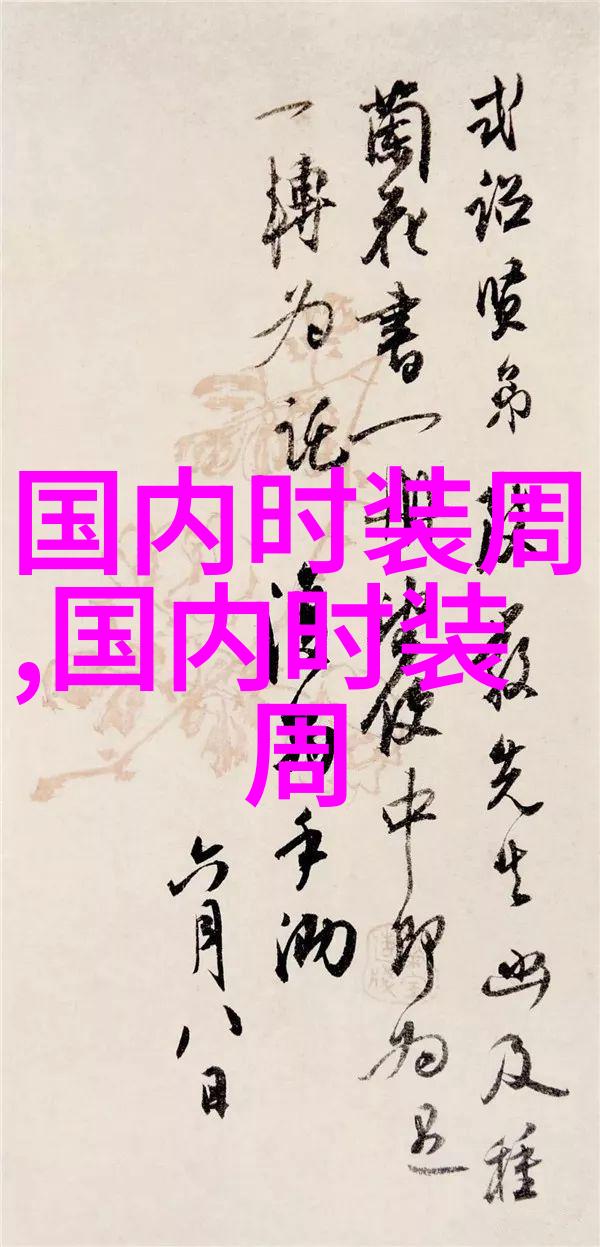 国内时装周
,国内时装
周
弍诏贤弟
教先生函及種
蘭花書一
使中即为
一轉为託
手泐
六月八日